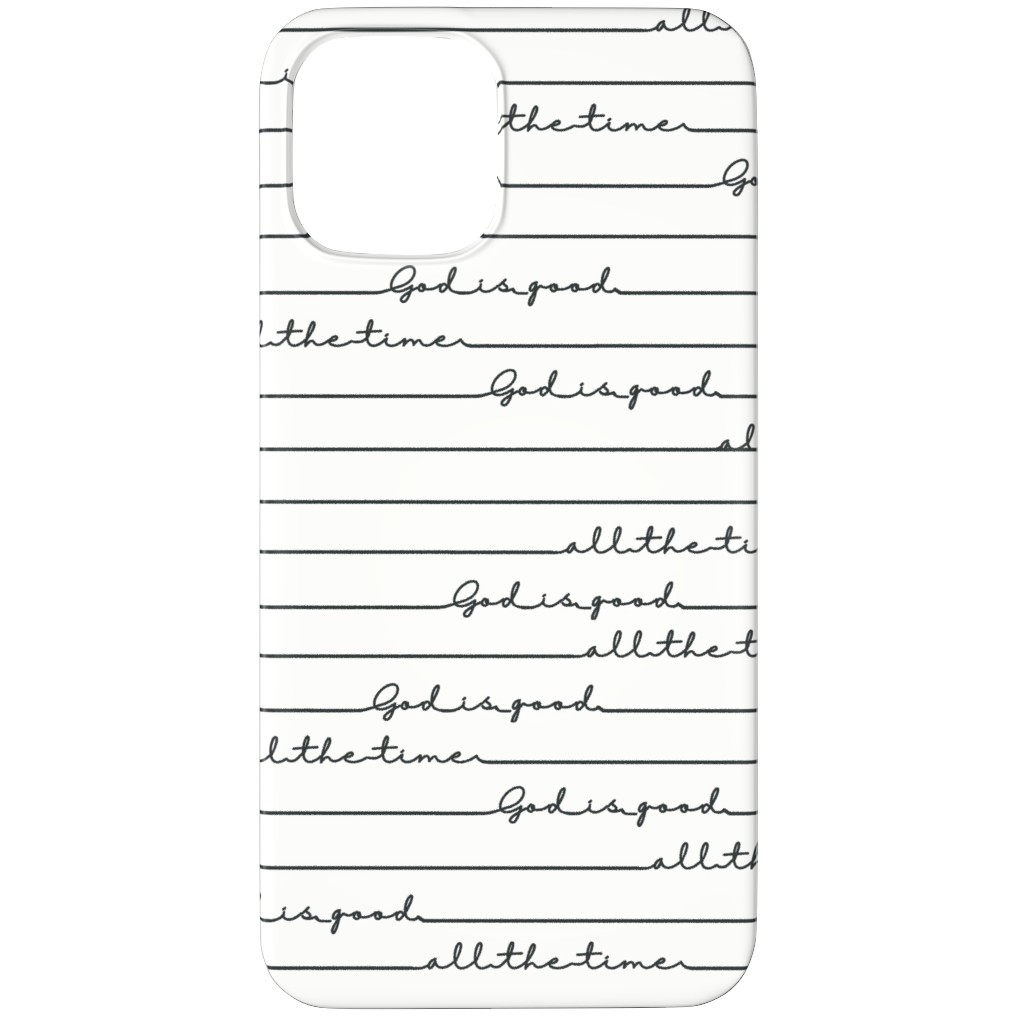 all
the time
God is good
the time
God is good
al
all the ti
God is good
all the t
God is good
ll the time
God is good
all th
is good
all the time